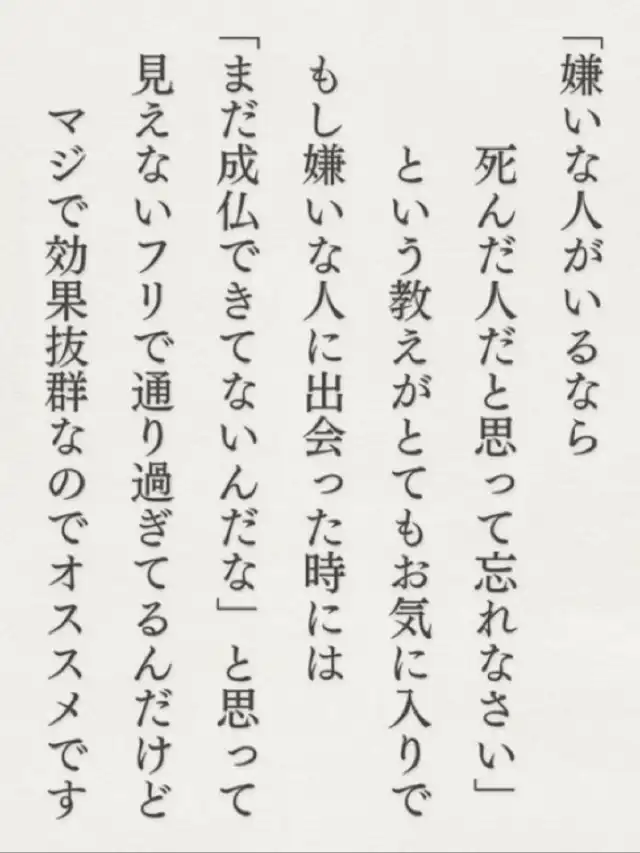 「嫌いな人がいるなら
死んだ人だと思って忘れなさい」
という教えがとてもお気に入りで
もし嫌いな人に出会った時には
「まだ成仏できてないんだな」と思って
見えないフリで通り過ぎてるんだけど
マジで効果抜群なのでオススメです